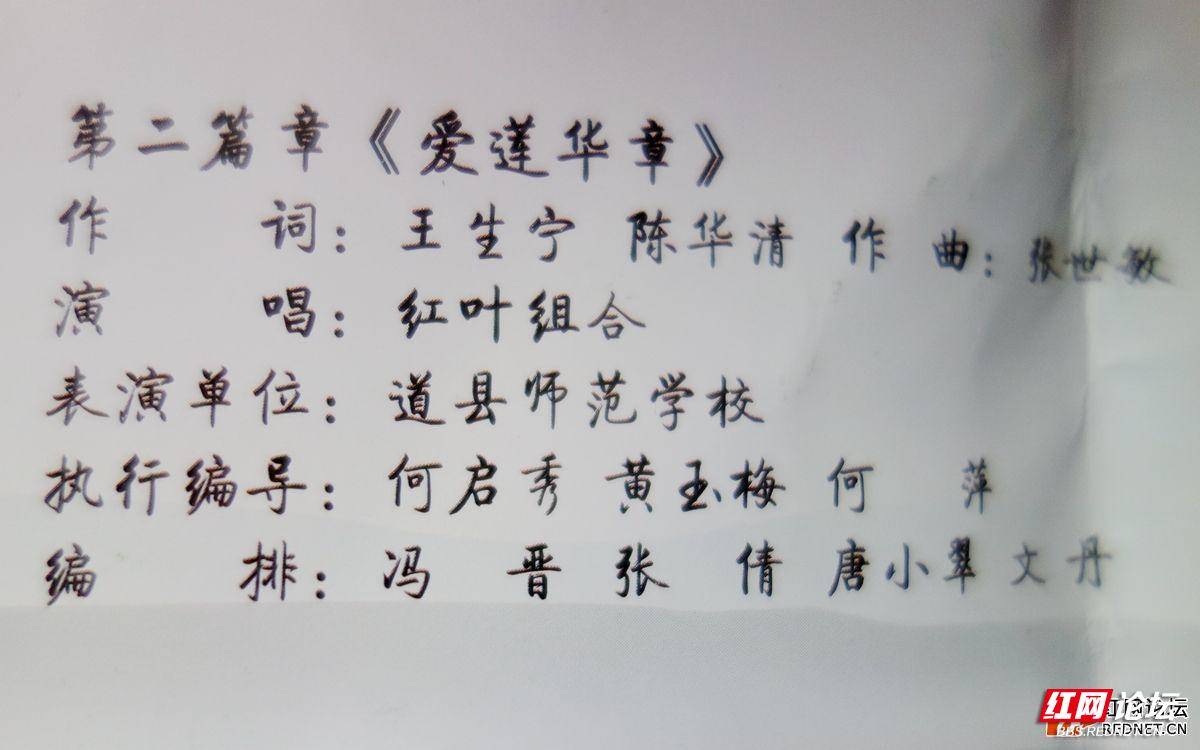 第二篇章《爱莲华章》
作　　词：王生宁 陈华清 作 曲：张世敏
演　　唱：红叶组合
表演单位：道县师范学校
执行编导：何启秀 黄玉梅 何　萍
编　　排：冯　晋 张　倩 唐小翠 文丹
红网论坛
RFDNET.CN